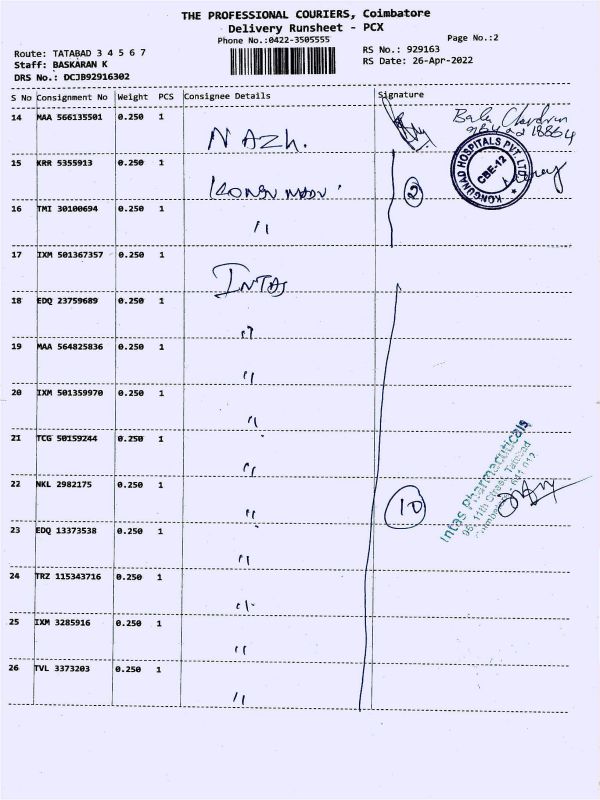 THE PROFESSIONAL COURIERS, Coimbatore
Delivery Runsheet - PCX
Phone No.:0422-3505555
Page No.:2
Route: TATABAD 3 4 5 6 7
Staff: BASKARAN K
DRS No.: DCJB92916302
RS No.: 929163
RS Date: 26-Apr-2022
S No Consignment No Weight PCS Consignee Details Signature
14 MAA 566135501 0.250 1
NAZh.
15 KRR 5355913 0.250 1
16 TMI 30100694 0.250 1
"
2
KONGUNAD HOSPITALS PVT. LTD.
CBE-12
17 IXM 501367357 0.250 1
INTAS
18 EDQ 23759689 0.250 1
"
19 MAA 564825836 0.250 1
"
20 IXM 501359970 0.250 1
"
21 TCG 50159244 0.250 1
"
22 NKL 2982175 0.250 1
"
10
Intas Pharmaceuticals
95, 11th Street, Tatabad
Coimbatore - 641 012
23 EDQ 13373538 0.250 1
"
24 TRZ 115343716 0.250 1
"
25 IXM 3285916 0.250 1
"
26 TVL 3373203 0.250 1
"